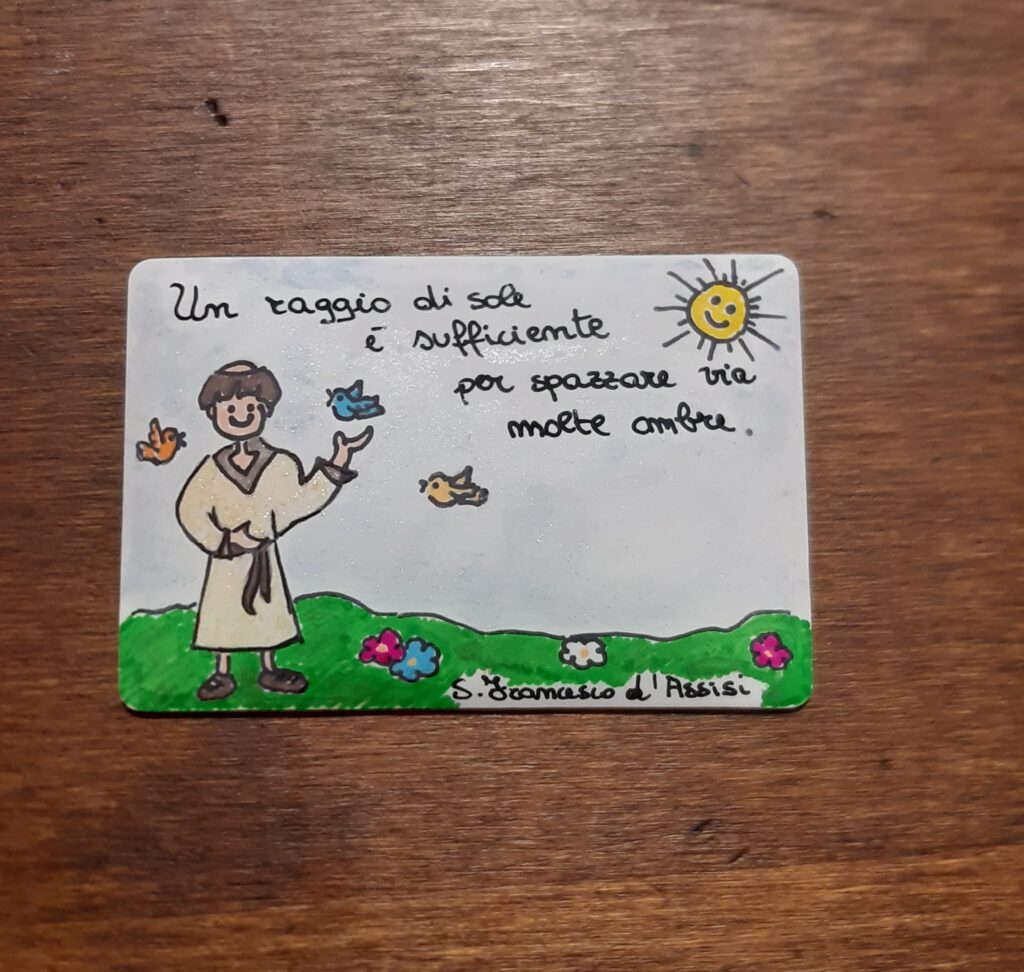 Un raggio di sole
è sufficiente
per spazzare via
molte ombre.
S. Francesco d'Assisi